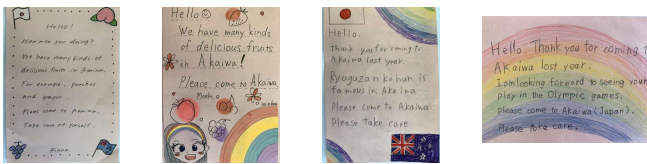 Hello!
How are you doing?
We have many kinds of
delicious fruits in Akaiwa.
For example, peaches
and grapes
Please come to Akaiwa.
Take care of yourself.
Hello
We have many kinds
of delicious fruits
in Akaiwa!
Please come to Akaiwa
Hello.
Thank you for coming to
Akaiwa last year.
Ryoguzankohun is
famous in Akaiwa
Please come to Akaiwa.
Please take care
Hello. Thank you for coming t
Akaiwa last year.
I am looking forward to seeing your
play in the Olympic games.
Please come to Akaiwa (Japan).
Please take care.